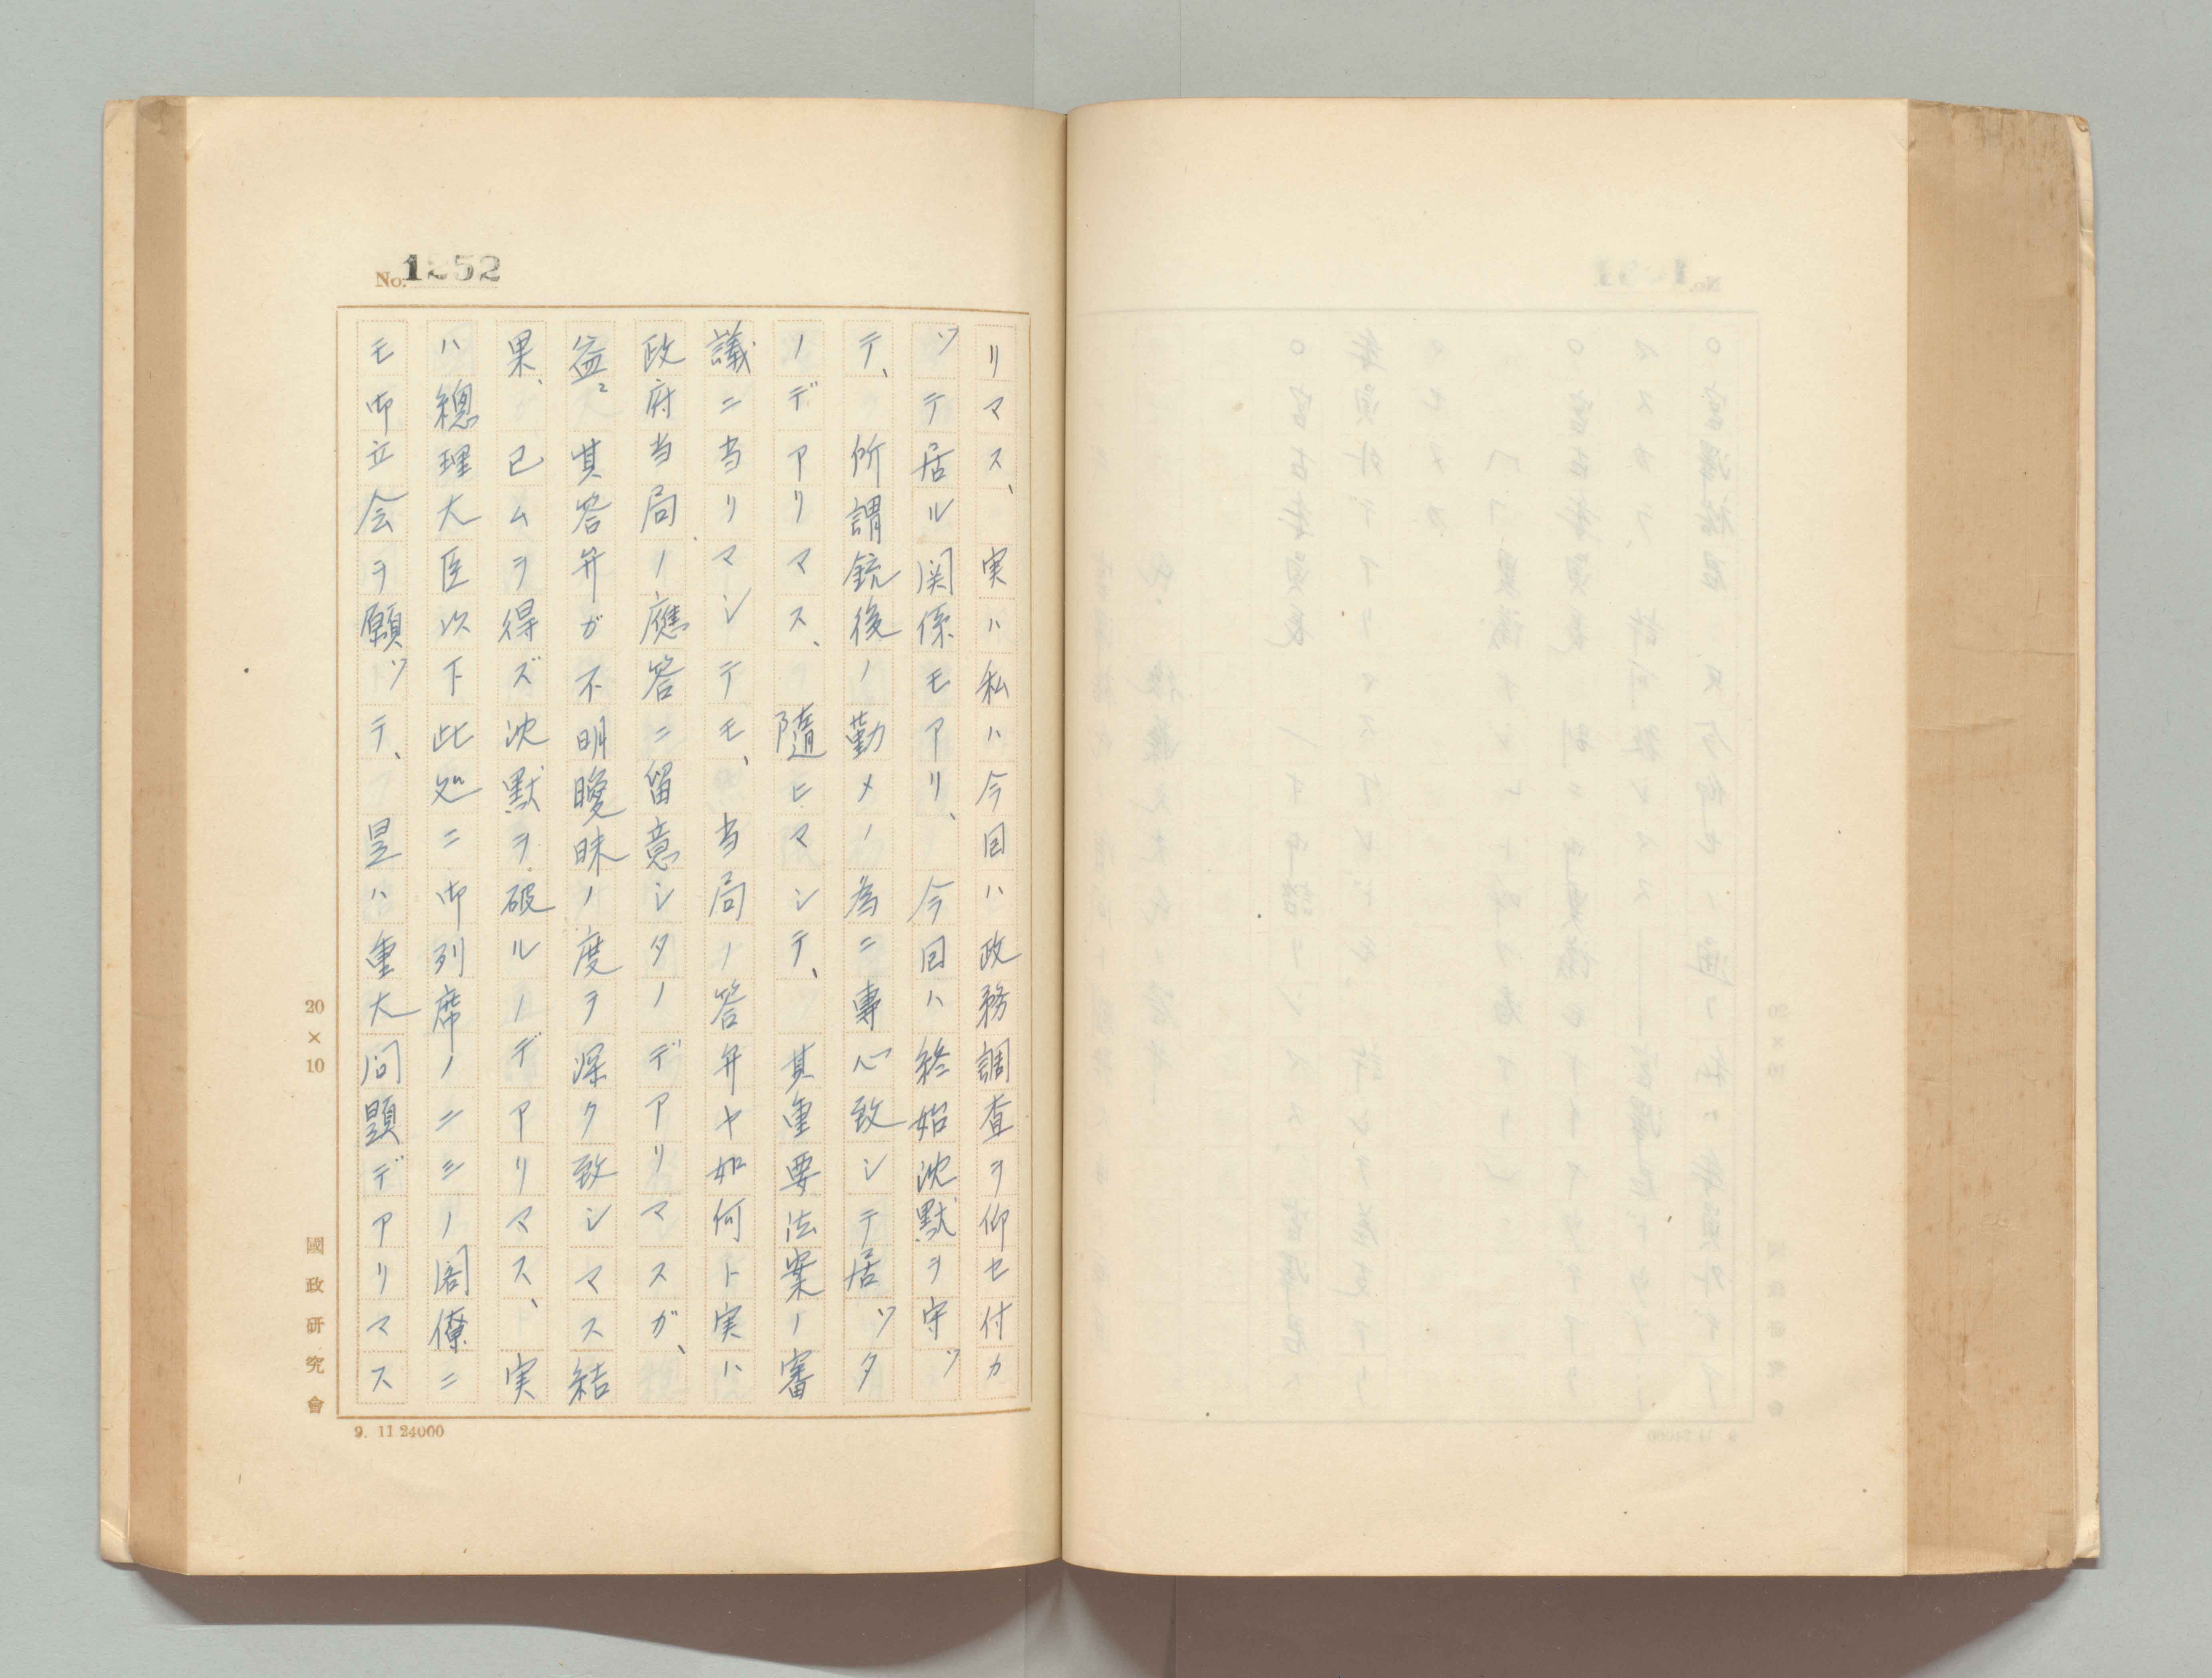 No. 1252
リマス、実ハ私ハ今回ハ政務調査ヲ仰セ付カ
ツテ居ル関係モアリ、今回ハ終始沈默ヲ守ツ
テ、所謂銃後ノ勤メノ為ニ專心致シテ居ツタ
ノデアリマス、隨ヒマシテ、其重要法案ノ審
議ニ当リマシテモ、当局ノ答弁ヤ如何ト実ハ
政府当局ノ應答ニ留意シタノデアリマスガ、
益〻其答弁ガ不明曖昧ノ度ヲ深ク致シマス結
果、已ムヲ得ズ沈默ヲ破ルノデアリマス、実
ハ總理大臣以下此処ニ御列席ノニ三ノ閣僚ニ
モ御立会ヲ願ツテ、是ハ重大問題デアリマス
20×10
國政研究會
9. 11 24000